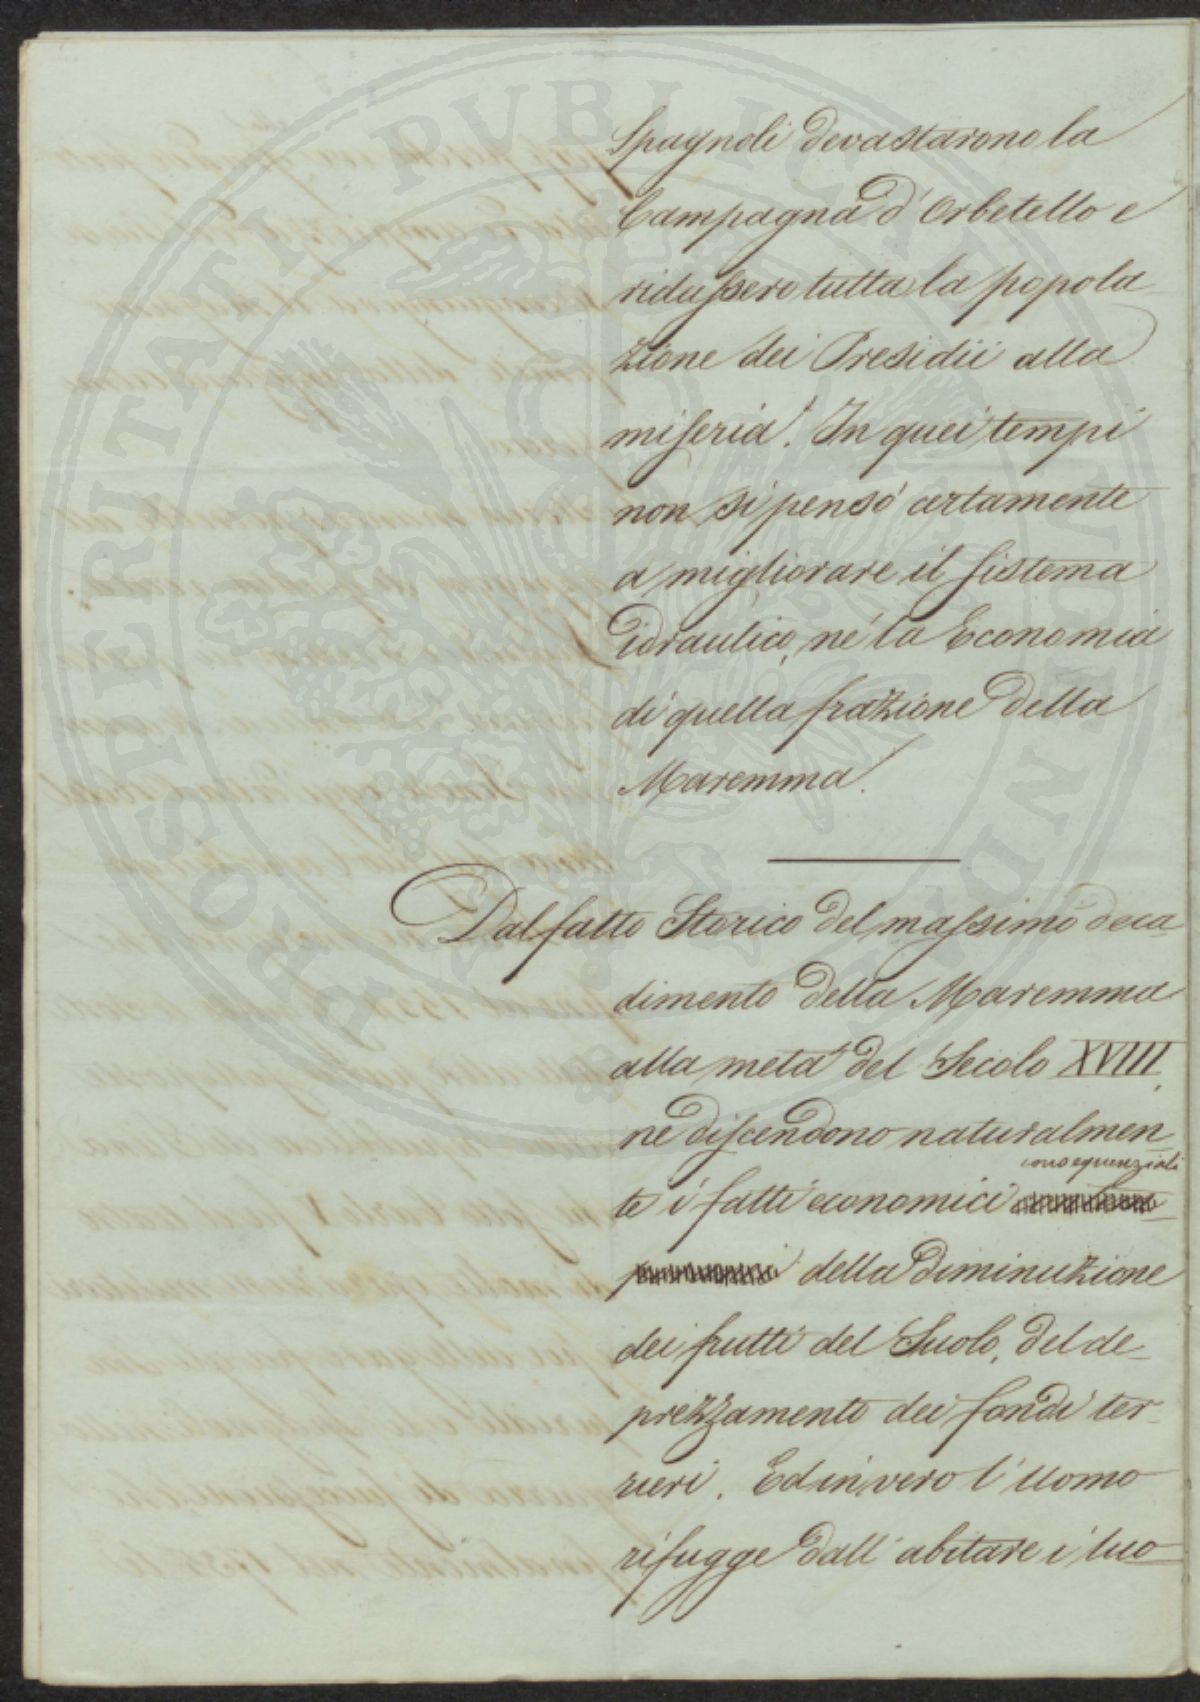 Spagnoli devastarono la
Campagna d'Orbetello e
ridussero tutta la popola
zione dei Presidii alla
miseria. In quei tempi
non si pensò certamente
a migliorare il sistema
idraulico, nè la Economia
di quella frazione della
Maremma.
Dal fatto Storico del massimo deca-
dimento della Maremma
alla metà del Secolo XVIII,
ne discendono naturalmen-
consequenziali
te i fatti economici
della diminuzione
dei frutti del Suolo, del de-
prezzamento dei fondi ter-
rieri. Ed invero l'uomo
rifugge dall'abitare i luo-
PROSPERITATI PVBLICAE